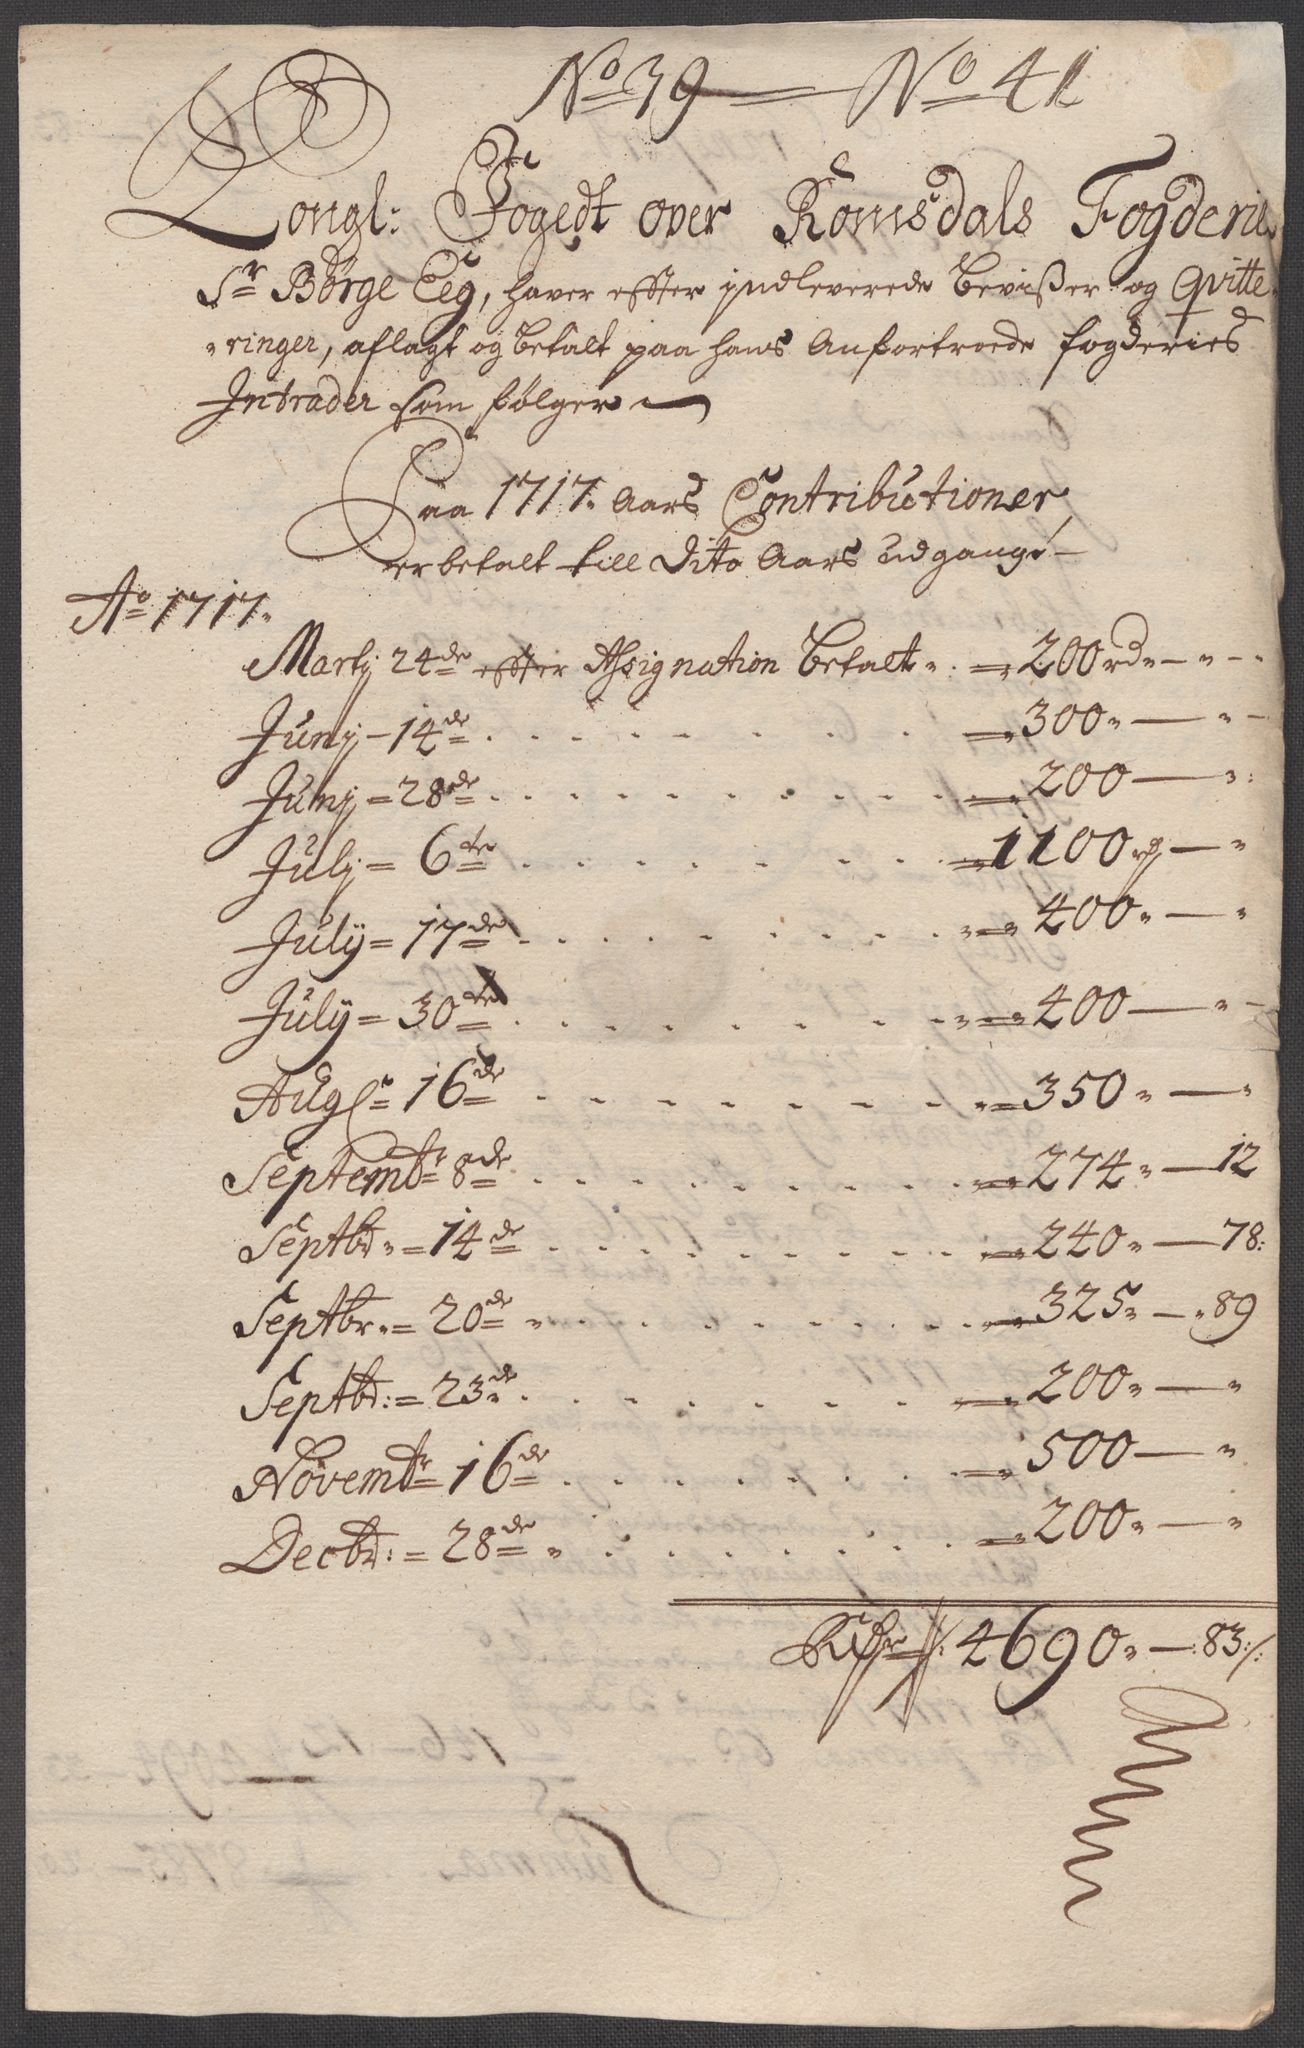 No 39 — No 41
Kongl: Fogedt over Romsdals Fogderie
Sr Børge Eeg, haver effter indleverede Bevißer og Qvitte-
ringer, aflagt og betalt paa hans Anfortroede fogderies
Intrader som følger
Paa 1717. Aars Contributioner
er betalt till Dito Aars udgang:
Ao 1717.
Martj 24de effter Assignation betalt. = 200 rd - " -
Junj - 14de . . . = 300 " — "
Junj = 28de . . . = 200 — "
Julj = 6te . . . = 1100 rd — "
July = 17de . . . = 400 " — "
July = 30te . . . = 400 — "
Augst 16de . . . = 350 " — "
Septembr 8de . . . = 274 " — 12
Septbr = 14de . . . = 240 " — 78:
Septbr = 20de . . . = 325 " — 89
Septbr: = 23de . . . = 200 " — "
Novembr 16de . . . = 500 — "
Decbr: = 28de . . . = 200 " — "
4690 " — 83:/: